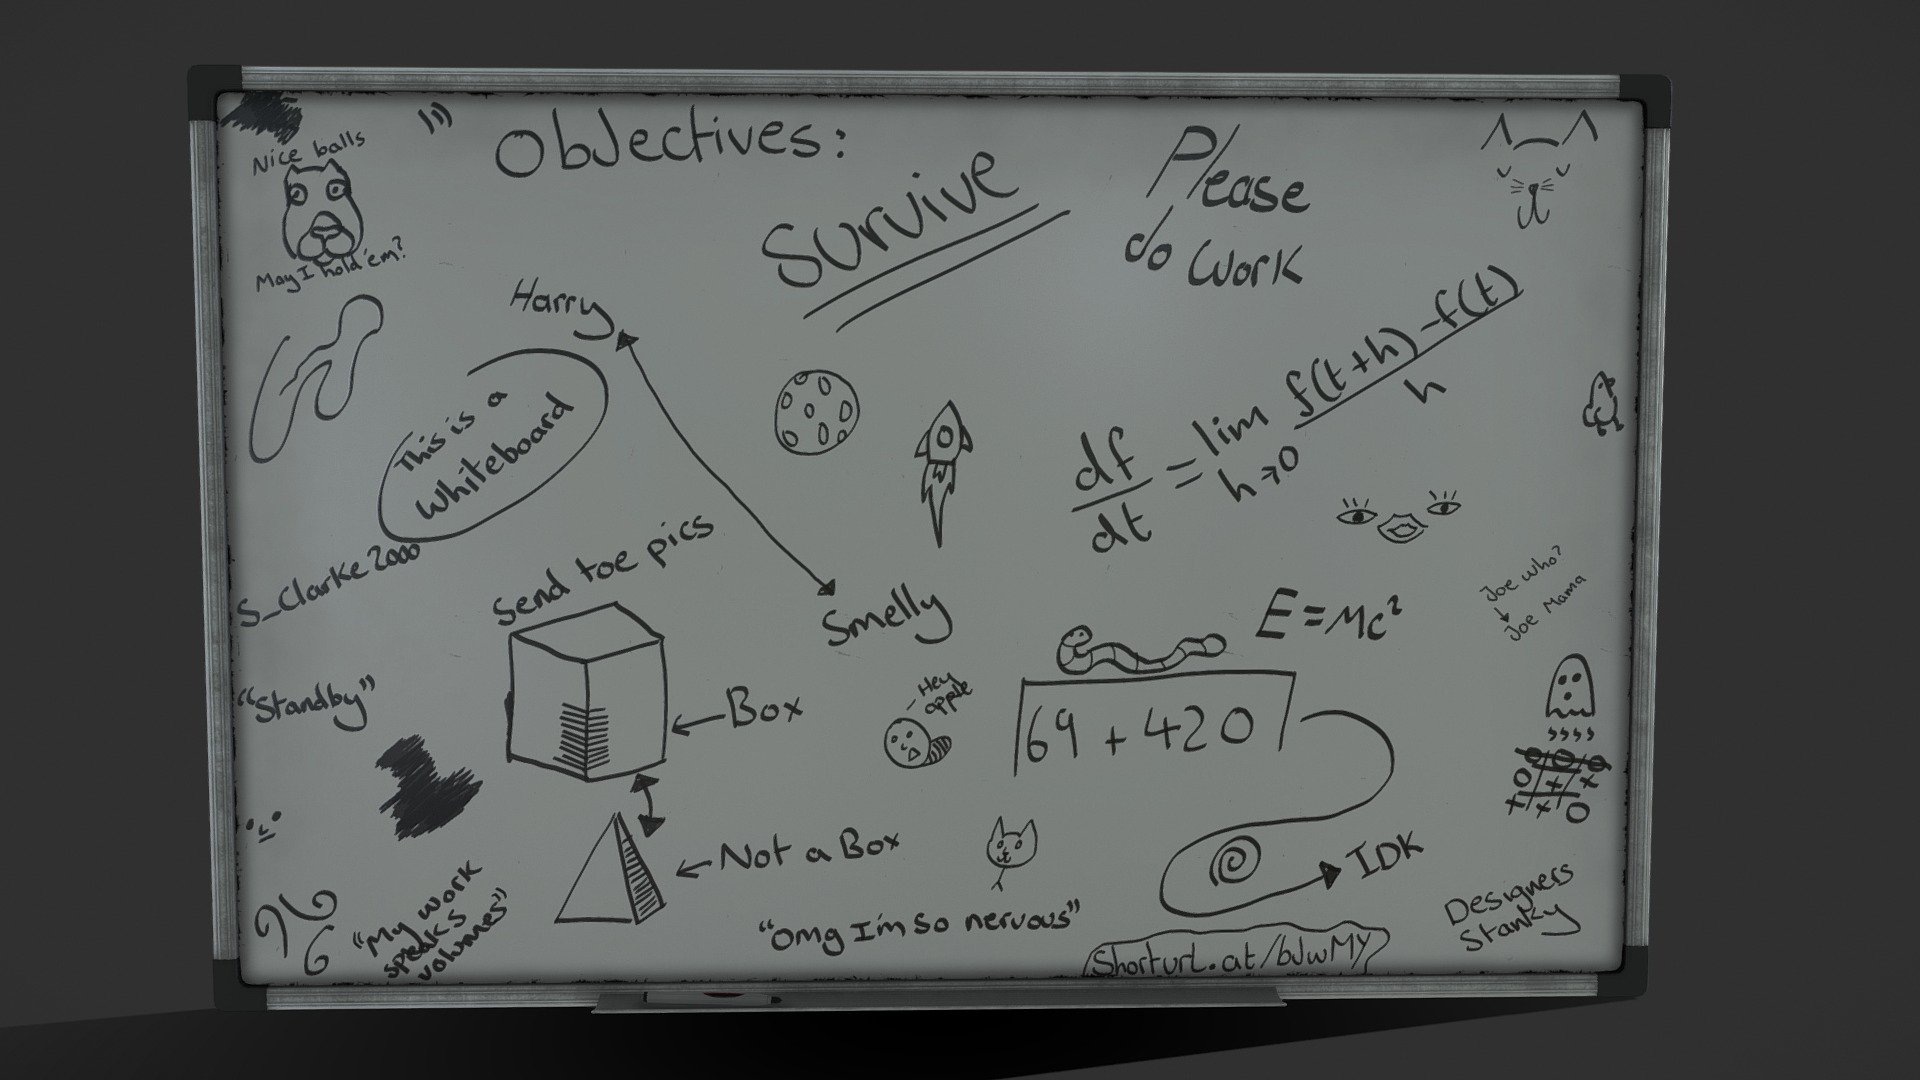 Nice balls
May I hold 'em?
Objectives:
Survive
Please
do Work
Harry
This is a
Whiteboard
S_Clarke2000
Send toe pics
Smelly
df/dt = lim h→0 f(t+h)-f(t)/h
Joe who?
Joe Mama
E=Mc²
"Standby"
Box
-Hey
apple
69 + 420
Not a Box
IDK
"My work
speaks
volumes"
"Omg I'm so nervous"
Designers
Stanky
Shorturl.at/bJwMY
O O O
O + x
+ x O